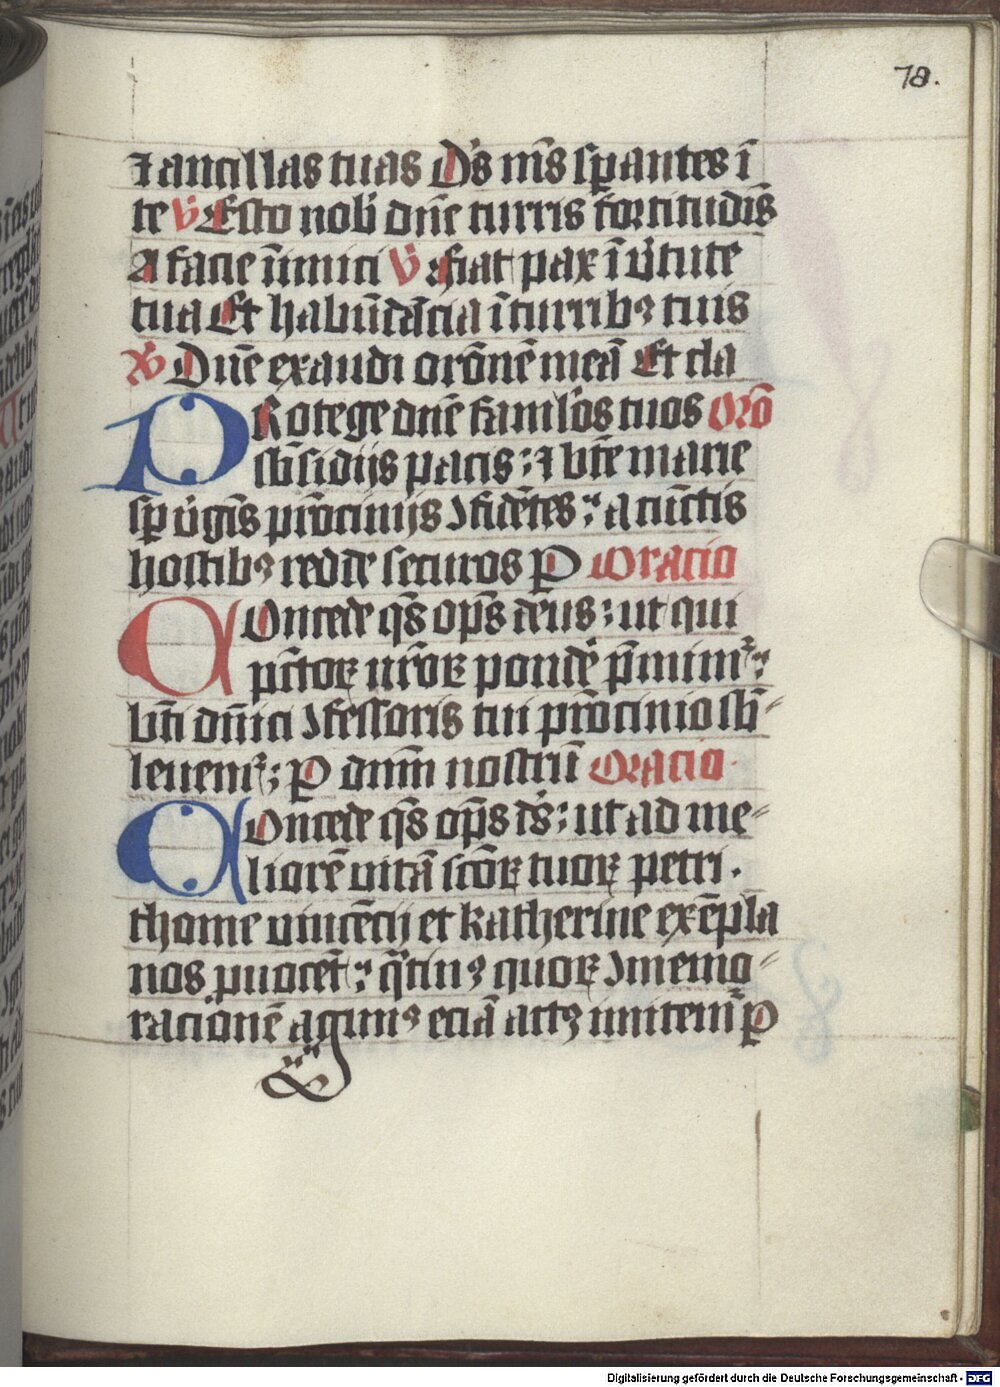 78.
⁊ ancillas tuas D's m̅s sp̲antes ī
te V̓ Esto nob̓ dn̅e turris fortitudis̅
A facie īimici V̓ Fiat pax ī v̓tute
tua Et habūdācia ī turribꝰ tuis
℟ Dn̅e exaudi oro̅nē meā Et cla
PRotege dn̅e famul̓os tuos Oro̅
sb̅sidijs pacis : ⁊ bt̅e marie
sp̲ v̓gīs pr̅ocinijs ↄfidētes : a cūctis
hostibꝰ redde securos P̲ Oracio
COncede qs̅ op̅s deus : ut qui
pc̅torꝝ nr̅orꝝ pondē p̅mimr̓ :
bt̅i dn̅ici ↄfessoris tui pr̅ocinio sb̅-
leuemr̓ : P̲ dnm̅ nostrū Oracio
COncede qs̅ op̅s ds̅ : ut ad me-
liorē uitā sco̅rꝝ tuorꝝ petri .
thome vincēcij et katherine exēpla
nos p̲uocēt : qͣtinꝰ quorꝝ ↄmemo-
racionē agimꝰ eciā actꝰ imitemr̓ P̲
Digitalisierung gefördert durch die Deutsche Forschungsgemeinschaft - DFG